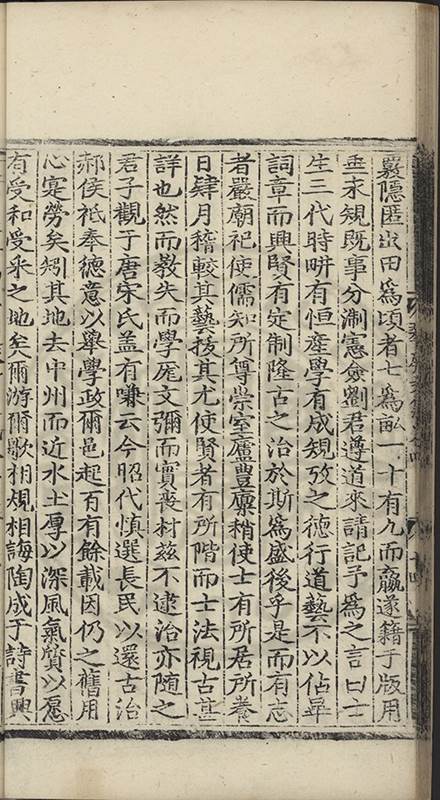 襲隱匿出田爲頃者七爲畝一十有九而贏遂籍于版用
垂永規既事分淛憲僉劉君遵道來請記予爲之言曰士
生三代時畊有恒產學有成規攷之德行道藝不以佔畢
詞章而興賢有定制隆古之治於斯爲盛後乎是而有志
者嚴廟祀使儒知所尊崇室廬豐廩稍使士有所居所養
日肄月稽較其藝拔其尤使賢者有所階而士法視古葢
詳也然而教失而學厖文彌而實喪材茲不逮治亦隨之
君子觀于唐宋氏盖有嗛云今昭代慎選長民以還古治
郝侯祗奉德意以舉學政邇邑起百有餘載因仍之舊用
心寔勞矣矧其地去中州而近水土厚以深風氣質以愿
有受和受采之地矣爾游爾歌相規相誨陶成于詩書興